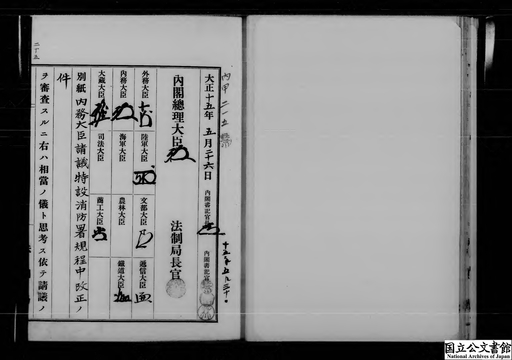 内甲二一五
大正十五年 五月二十六日
内閣書記官長
内閣書記官
十五年五月二十
内閣總理大臣
法制局長官
外務大臣
陸軍大臣
文部大臣
遞信大臣
内務大臣
海軍大臣
農林大臣
鐵道大臣
大藏大臣
司法大臣
商工大臣
別紙内務大臣請議特設消防署規程中改正ノ
件
ヲ審査スルニ右ハ相當ノ儀ト思考ス依テ請議ノ
二十五
国立公文書館
National Archives of Japan